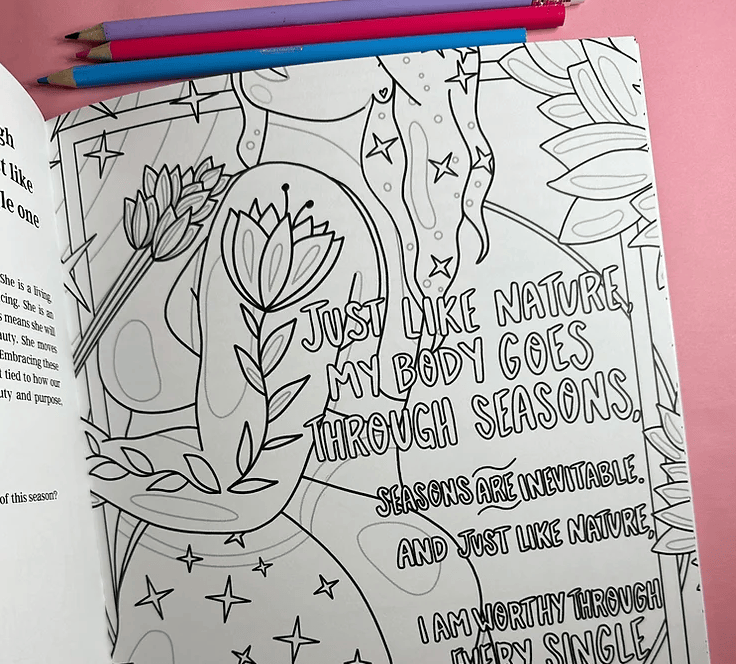 gh
t like
le one
She is a living,
cing. She is an
s means she will
auty. She moves
Embracing these
t tied to how our
uty and purpose.
of this season?
JUST LIKE NATURE,
MY BODY GOES
THROUGH SEASONS.
SEASONS ARE INEVITABLE.
AND JUST LIKE NATURE,
I AM WORTHY THROUGH
EVERY SINGLE